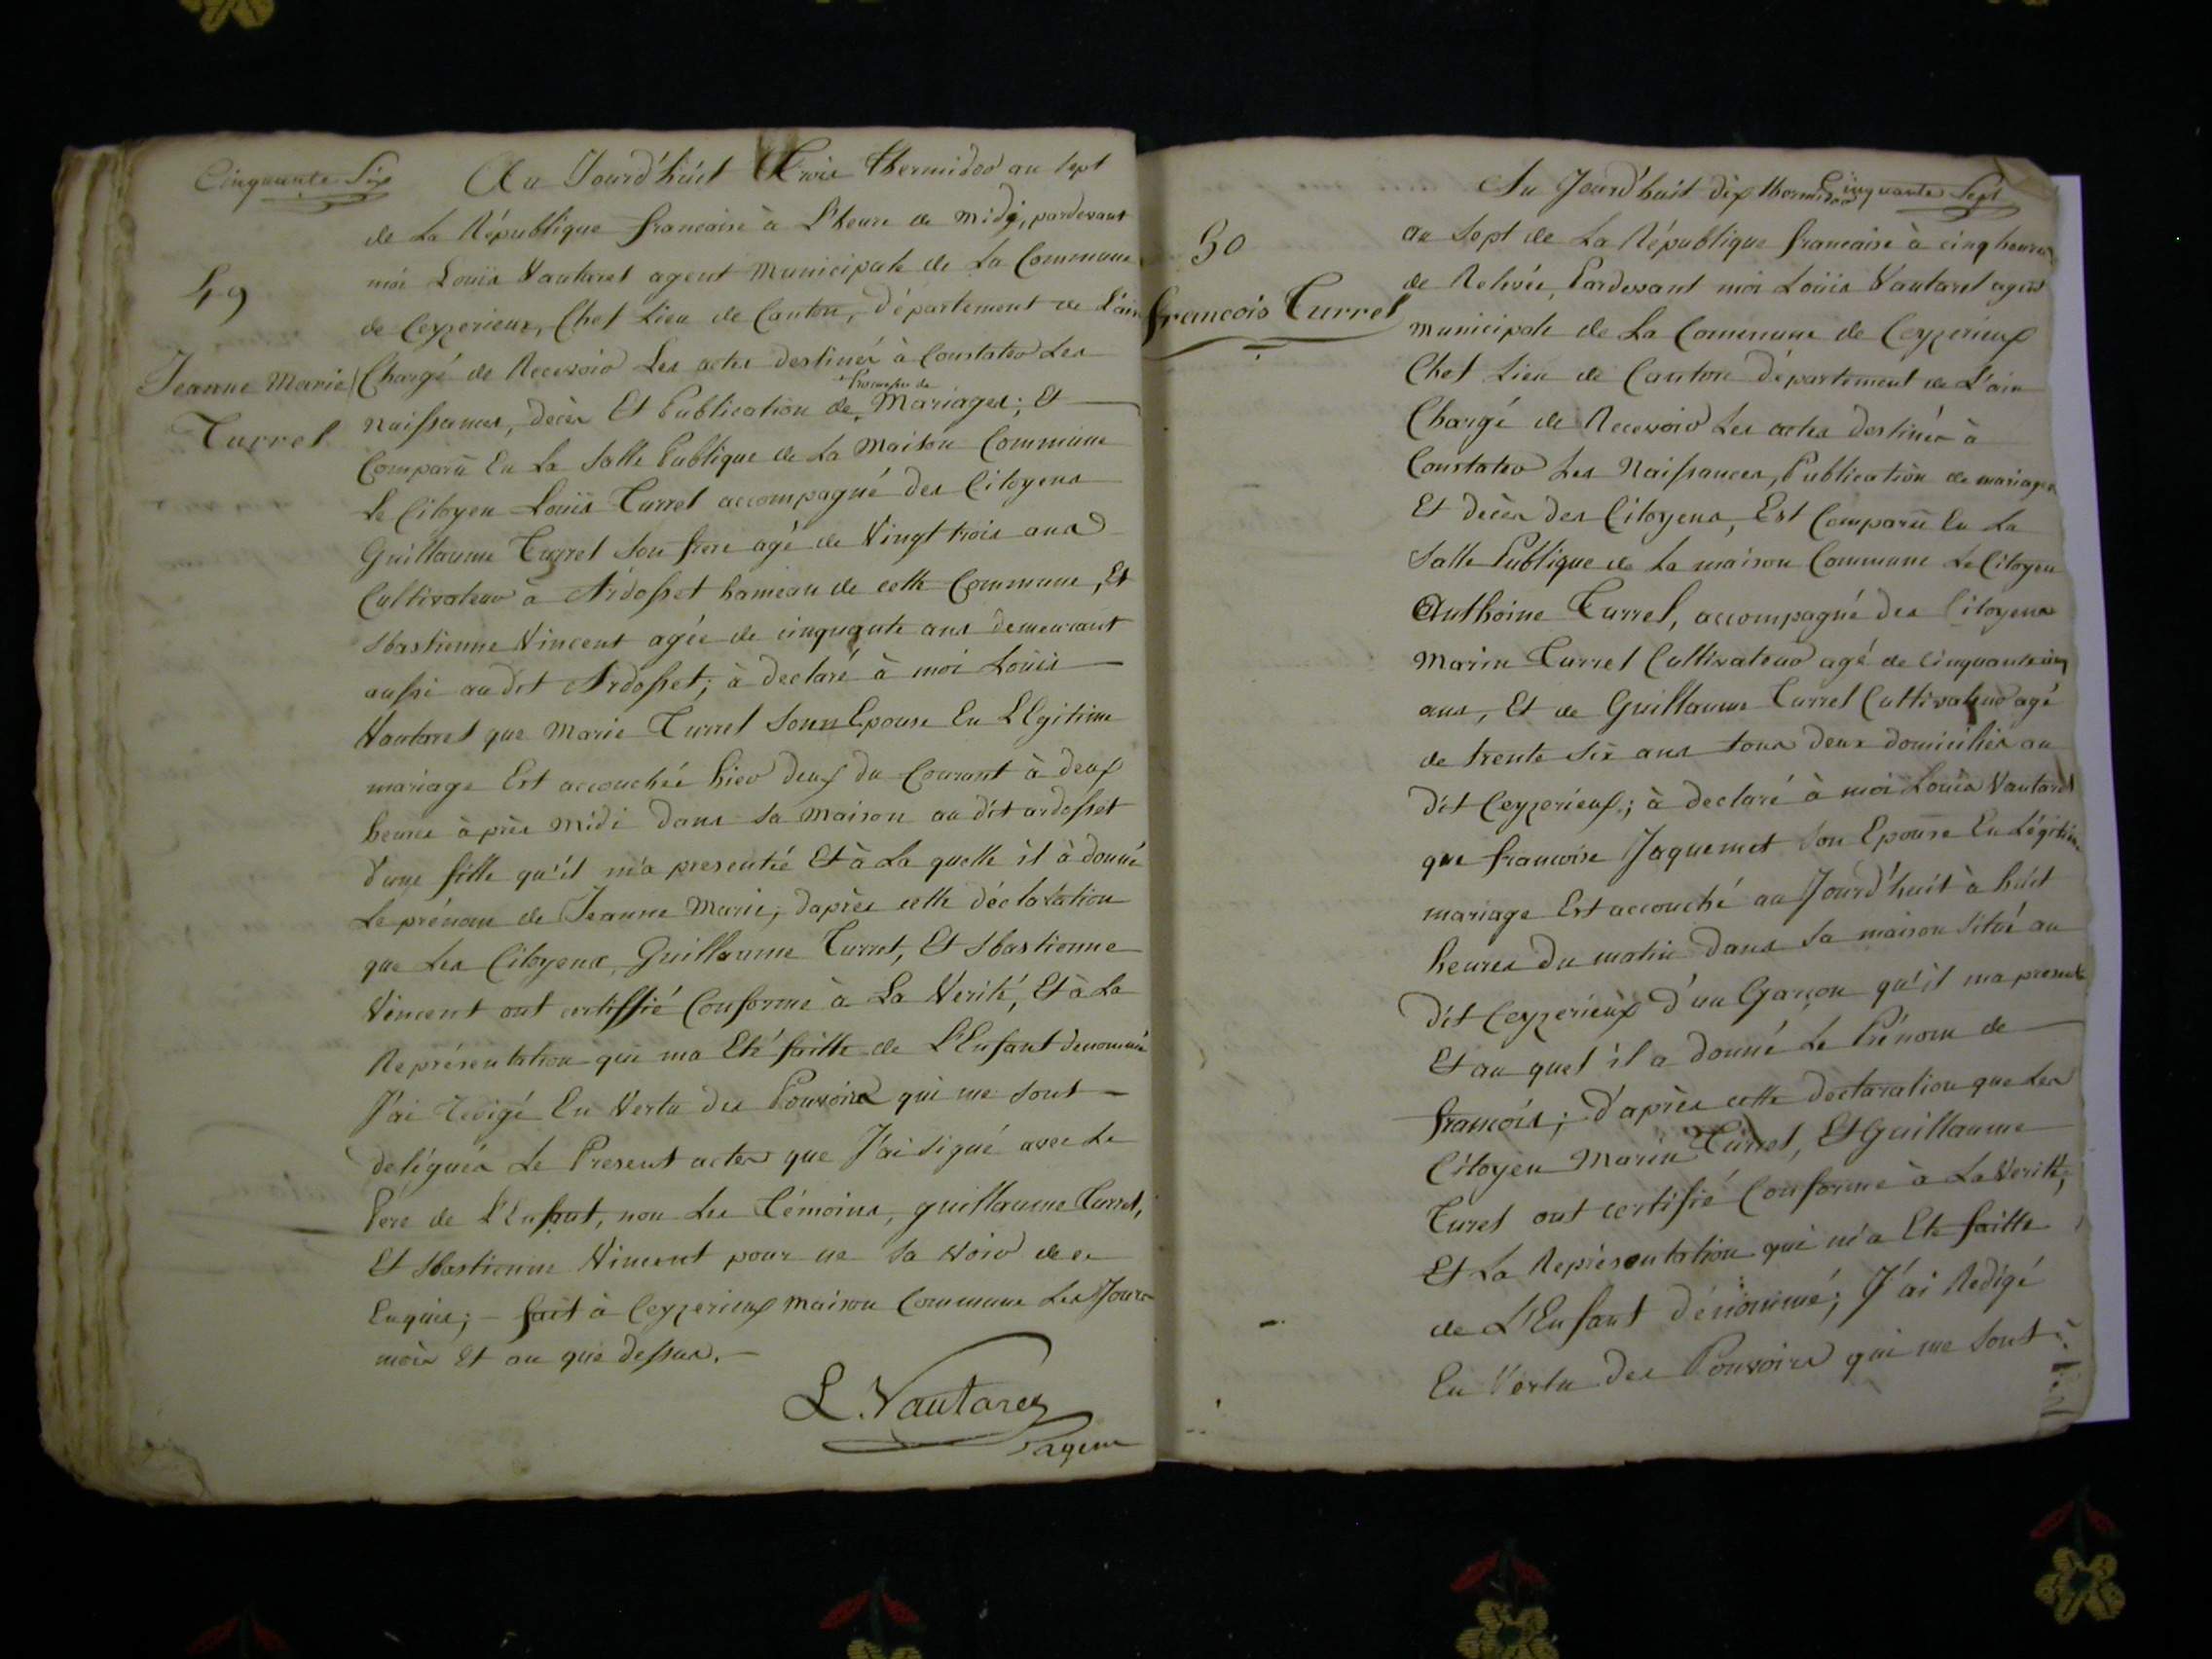 Cinquante Six
49
Jeanne Marie
Turrel
Au Jourd'húit Trois thermidor an sept
de La République francaise à L'heure de midi, pardevant
moi Louis Vautaret agent Municipale de La Commune
de Ceyzerieux, Chef Lieu de Canton, département de L'ain
Chargé de Recevoir Les actes destinés à Constater Les
promesses de
Naissances, decès Et Publication de Mariages; Et
Comparu En La Salle Publique de La Maison Commune
Le Citoyen Louis Turrel accompagné des Citoyens
Guillaume Turrel Son frere agé de Vingt trois ans
Cultivateur à Ardosset hameau de cette Commune, Et
Sbastienne Vincent agée de cinquante ans demeurant
aussi au dit Ardosset; à declaré à moi Louis
Vautaret que Marie Turrel Sonn Epouse En LEgitime
mariage Est accouchée hier deux du Courant à deux
heures àprès Midi dans sa maison au dit ardosset
d'une fille qu'il m'a presentée Et à La quelle il à donné
Le prénom de Jeanne Marie; daprès cette déclaration
que Les Citoyens Guillaume Turret, Et Sbastienne
Vincent ont certiffié Conforme à La Verité, Et à La
Représentation qui ma Eté faitte de L'Enfant denommé
J'ai redigé En Vertu des Pouvoirs qui me sont
delégués Le Present actes que J'ai signé avec Le
Père de L'Enfant, non Les Témoins, guillaume Turrel,
Et Sbastienne Vincent pour ne Sa voir de ce
Enquis; - fait à Ceyzerieux maison Commune Les Jours
mois Et an que dessus. -
L. Vautaret
agent
Cinquante Sept
50
francois Turrel
Au Jourd'huit dix thermidor
an Sept de La République francaise à cinq heures
de Relevée, Pardevant moi Louis Vautaret agent
municipale de La Commune de Ceyzerieux
Chef Lieu de Canton département de L'ain
Chargé de Recevoir Les actes destinés à
Constater Les Naissances, Publication de mariages
Et decès des Citoyens, Est Comparu En La
Salle Publique de La maison Commune Le Citoyen
Anthoine Turrel, accompagné des Citoyens
Marin Turrel Cultivateur agé de Cinquante cinq
ans, Et de Guillaume Turrel Cultivateur agé
de trente Six ans tous deux domiciliés au
dit Ceyzerieux; à declaré à moi Louis Vautaret
que francoise Jaquemet Son Epouse En Légitime
mariage Est accouché au Jourd'huit à húit
heures du matin dans Sa maison Situé au
dit Ceyzerieux d'un Garçon qu'il ma presenté
Et au quel il a donné Le Prénom de
francois; d'après cette déclaration que Les
Citoyen Marin Turrel, Et Guillaume
Turel ont certifié Conforme à La Verité,
Et La Représentation qui m'a Eté faitte
de L'Enfant dénommé; J'ai Redigé
En Vertu des Pouvoirs qui me sont